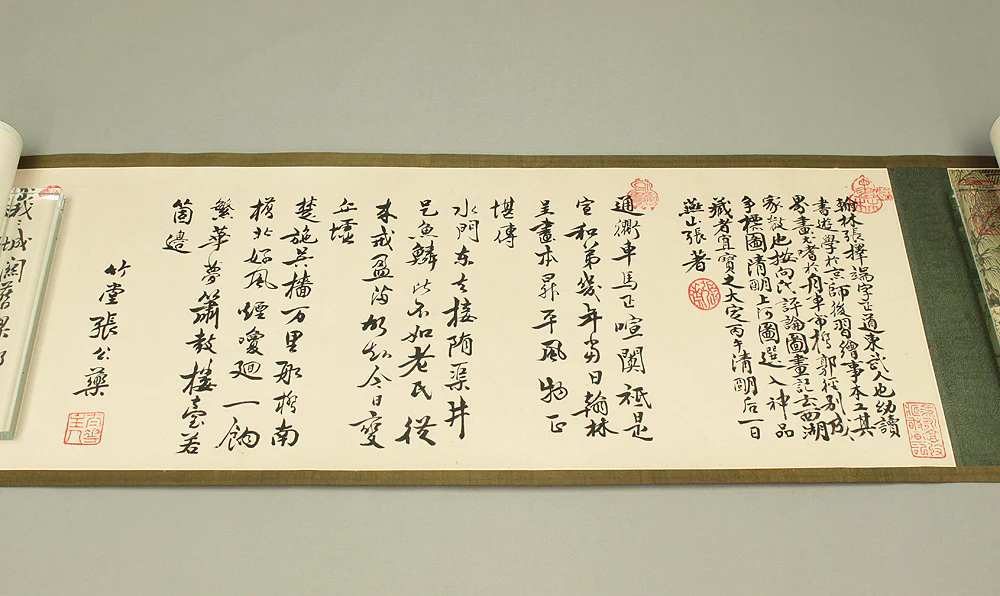 翰林張擇端字正道東武人也幼讀
書遊學於京師後習繪事本工其
界畫尤嗜於舟車市橋郭徑別成
家數也按向氏評論圖畫記云西湖
爭標圖清明上河圖選入神品
藏者宜寶之大定丙午清明后一日
燕山張著
通衢車馬正喧闐祗是
宣和第幾年當日翰林
呈畫本昇平風物正
堪傳
水門東去接隋渠井
邑魚鱗比不如老氏從
來戒盈滿故知今日變
丘墟
楚柂吳檣万里舡橋南
橋北好風煙喚廻一餉
繁華夢簫鼓樓臺若
箇邊
竹堂張公藥
城闕舊梁